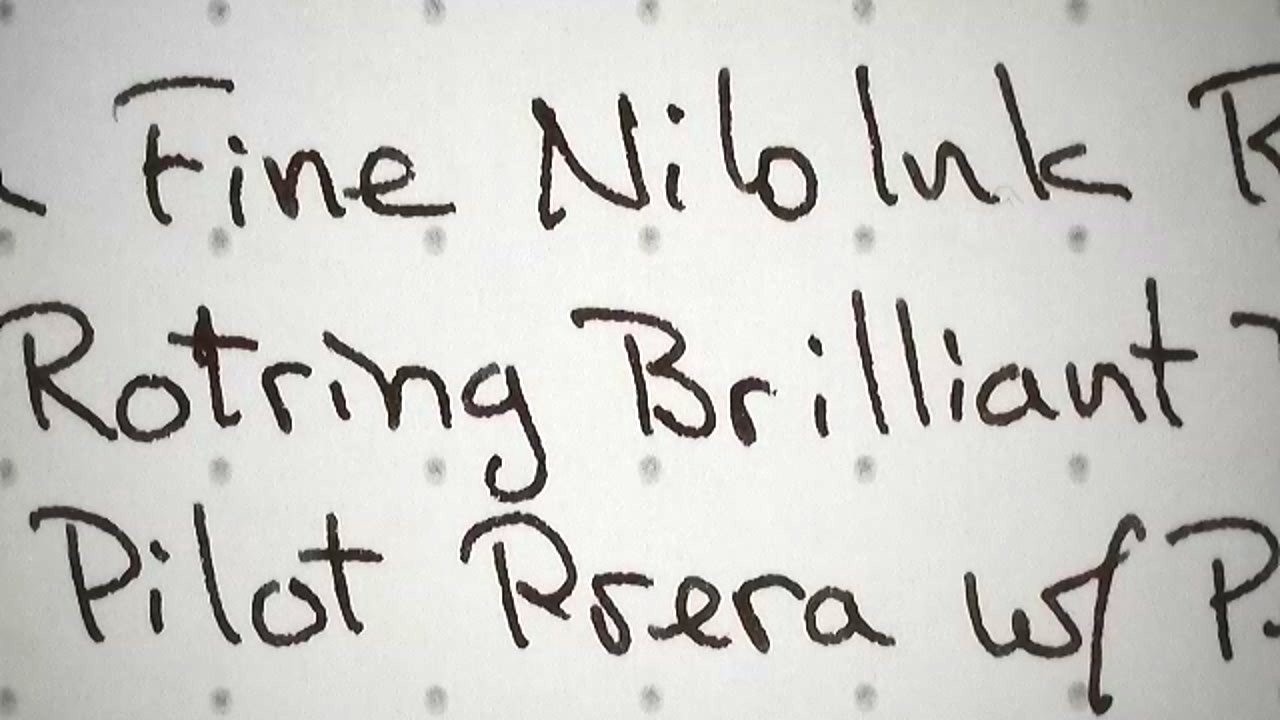 Fine Nib Ink
Rotring Brilliant
Pilot Prera w/